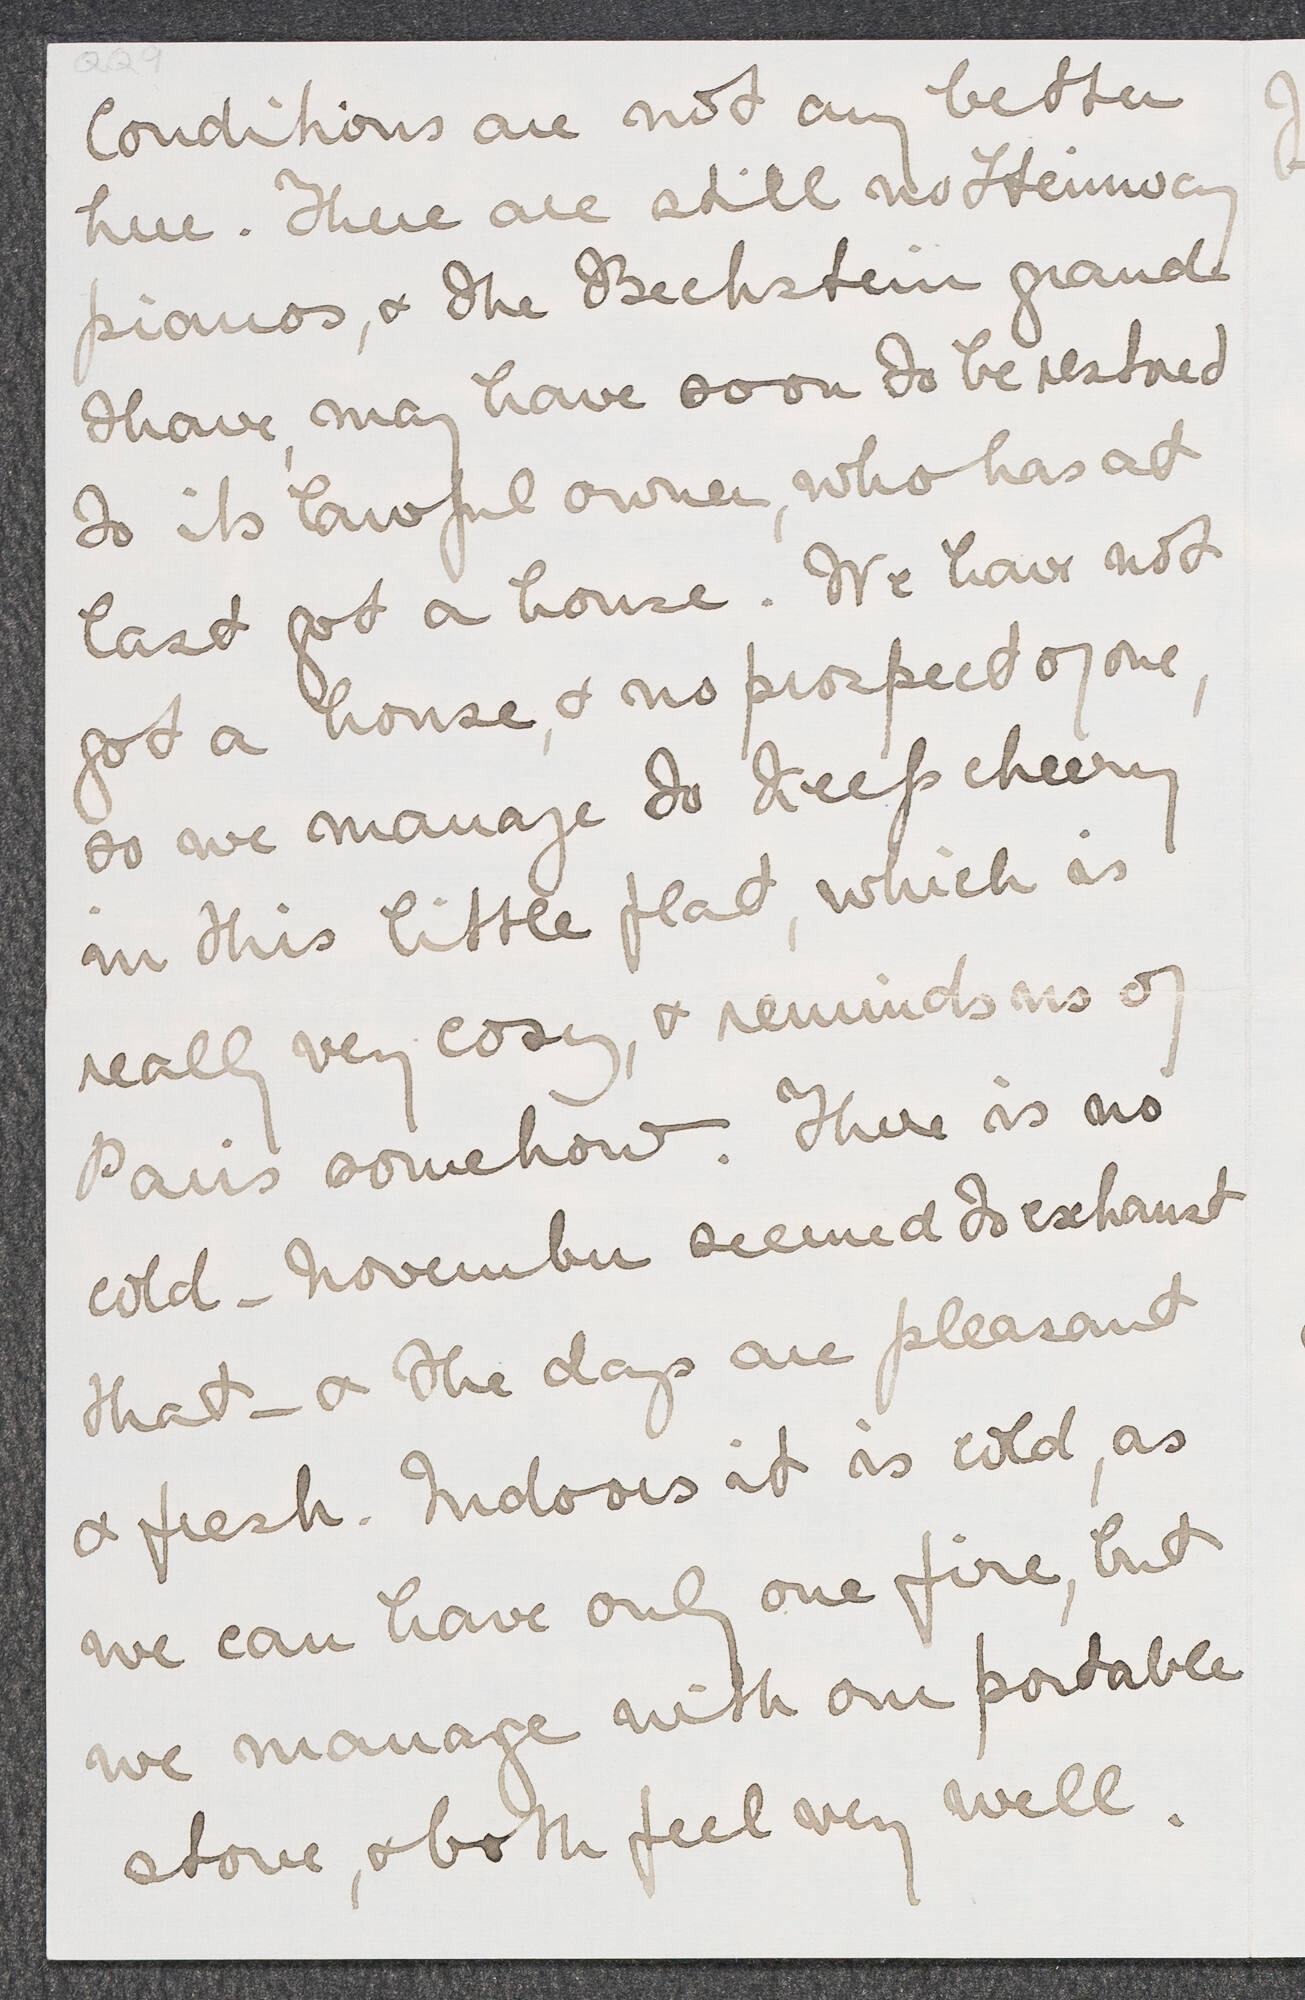 229
Conditions are not any better
here. There are still no Steinway
pianos, & the Bechstein grand
I have, may have soon to be restored
to its lawful owner, who has at
last got a house. We have not
got a house, & no prospect of one,
so we manage to keep cheery
in this little flat, which is
really very cosy, & reminds us of
Paris somehow. There is no
cold - November seemed to exhaust
that - & the days are pleasant
& fresh. Indoors it is cold, as
we can have only one fire, but
we manage with our portable
stove, & both feel very well.